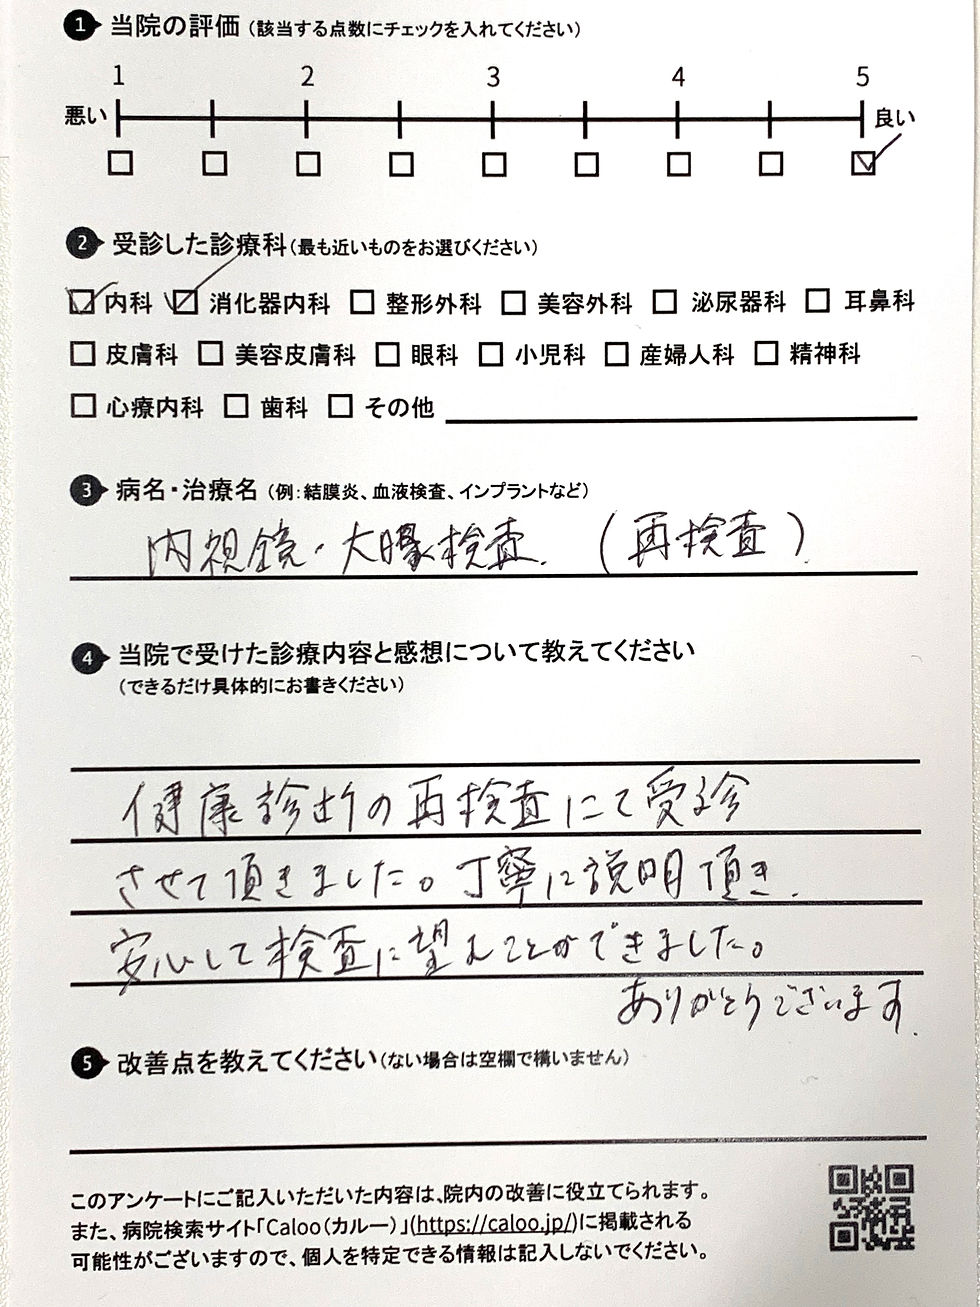 1 当院の評価（該当する点数にチェックを入れてください）
1 2 3 4 5
悪い 良い
2 受診した診療科（最も近いものをお選びください）
内科 消化器内科 整形外科 美容外科 泌尿器科 耳鼻科
皮膚科 美容皮膚科 眼科 小児科 産婦人科 精神科
心療内科 歯科 その他
3 病名・治療名（例：結膜炎、血液検査、インプラントなど）
内視鏡・大腸検査.（再検査）
4 当院で受けた診療内容と感想について教えてください
（できるだけ具体的にお書きください）
健康診断の再検査にて受診
させて頂きました。丁寧に説明頂き、
安心して検査に望むことができました。
ありがとうございます.
5 改善点を教えてください（ない場合は空欄で構いません）
このアンケートにご記入いただいた内容は、院内の改善に役立てられます。
また、病院検索サイト「Caloo（カルー）」(https://caloo.jp/)に掲載される
可能性がございますので、個人を特定できる情報は記入しないでください。